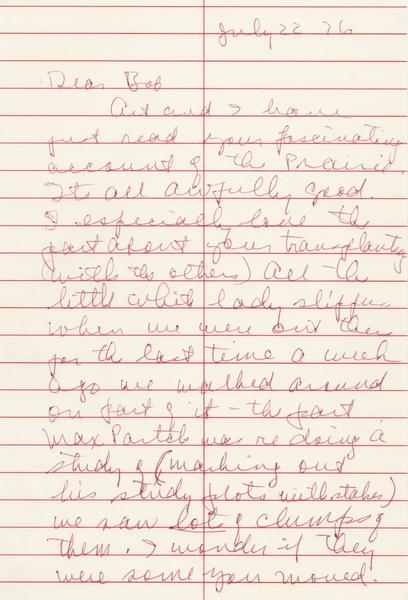 July 22 76
Dear Bob
Art and I have
just read your fascinating
account of the Prairie.
Its all awfully good.
I especially love the
part about your transplanting
(with the others) all the
little white lady slippers
when we were out there
for the last time a week
ago we walked around
on part of it - the part
Max Partch was re doing a
study of (marking out
his study plots with stakes)
we saw lots of clumps of
them. I wonder if they
were some you moved.